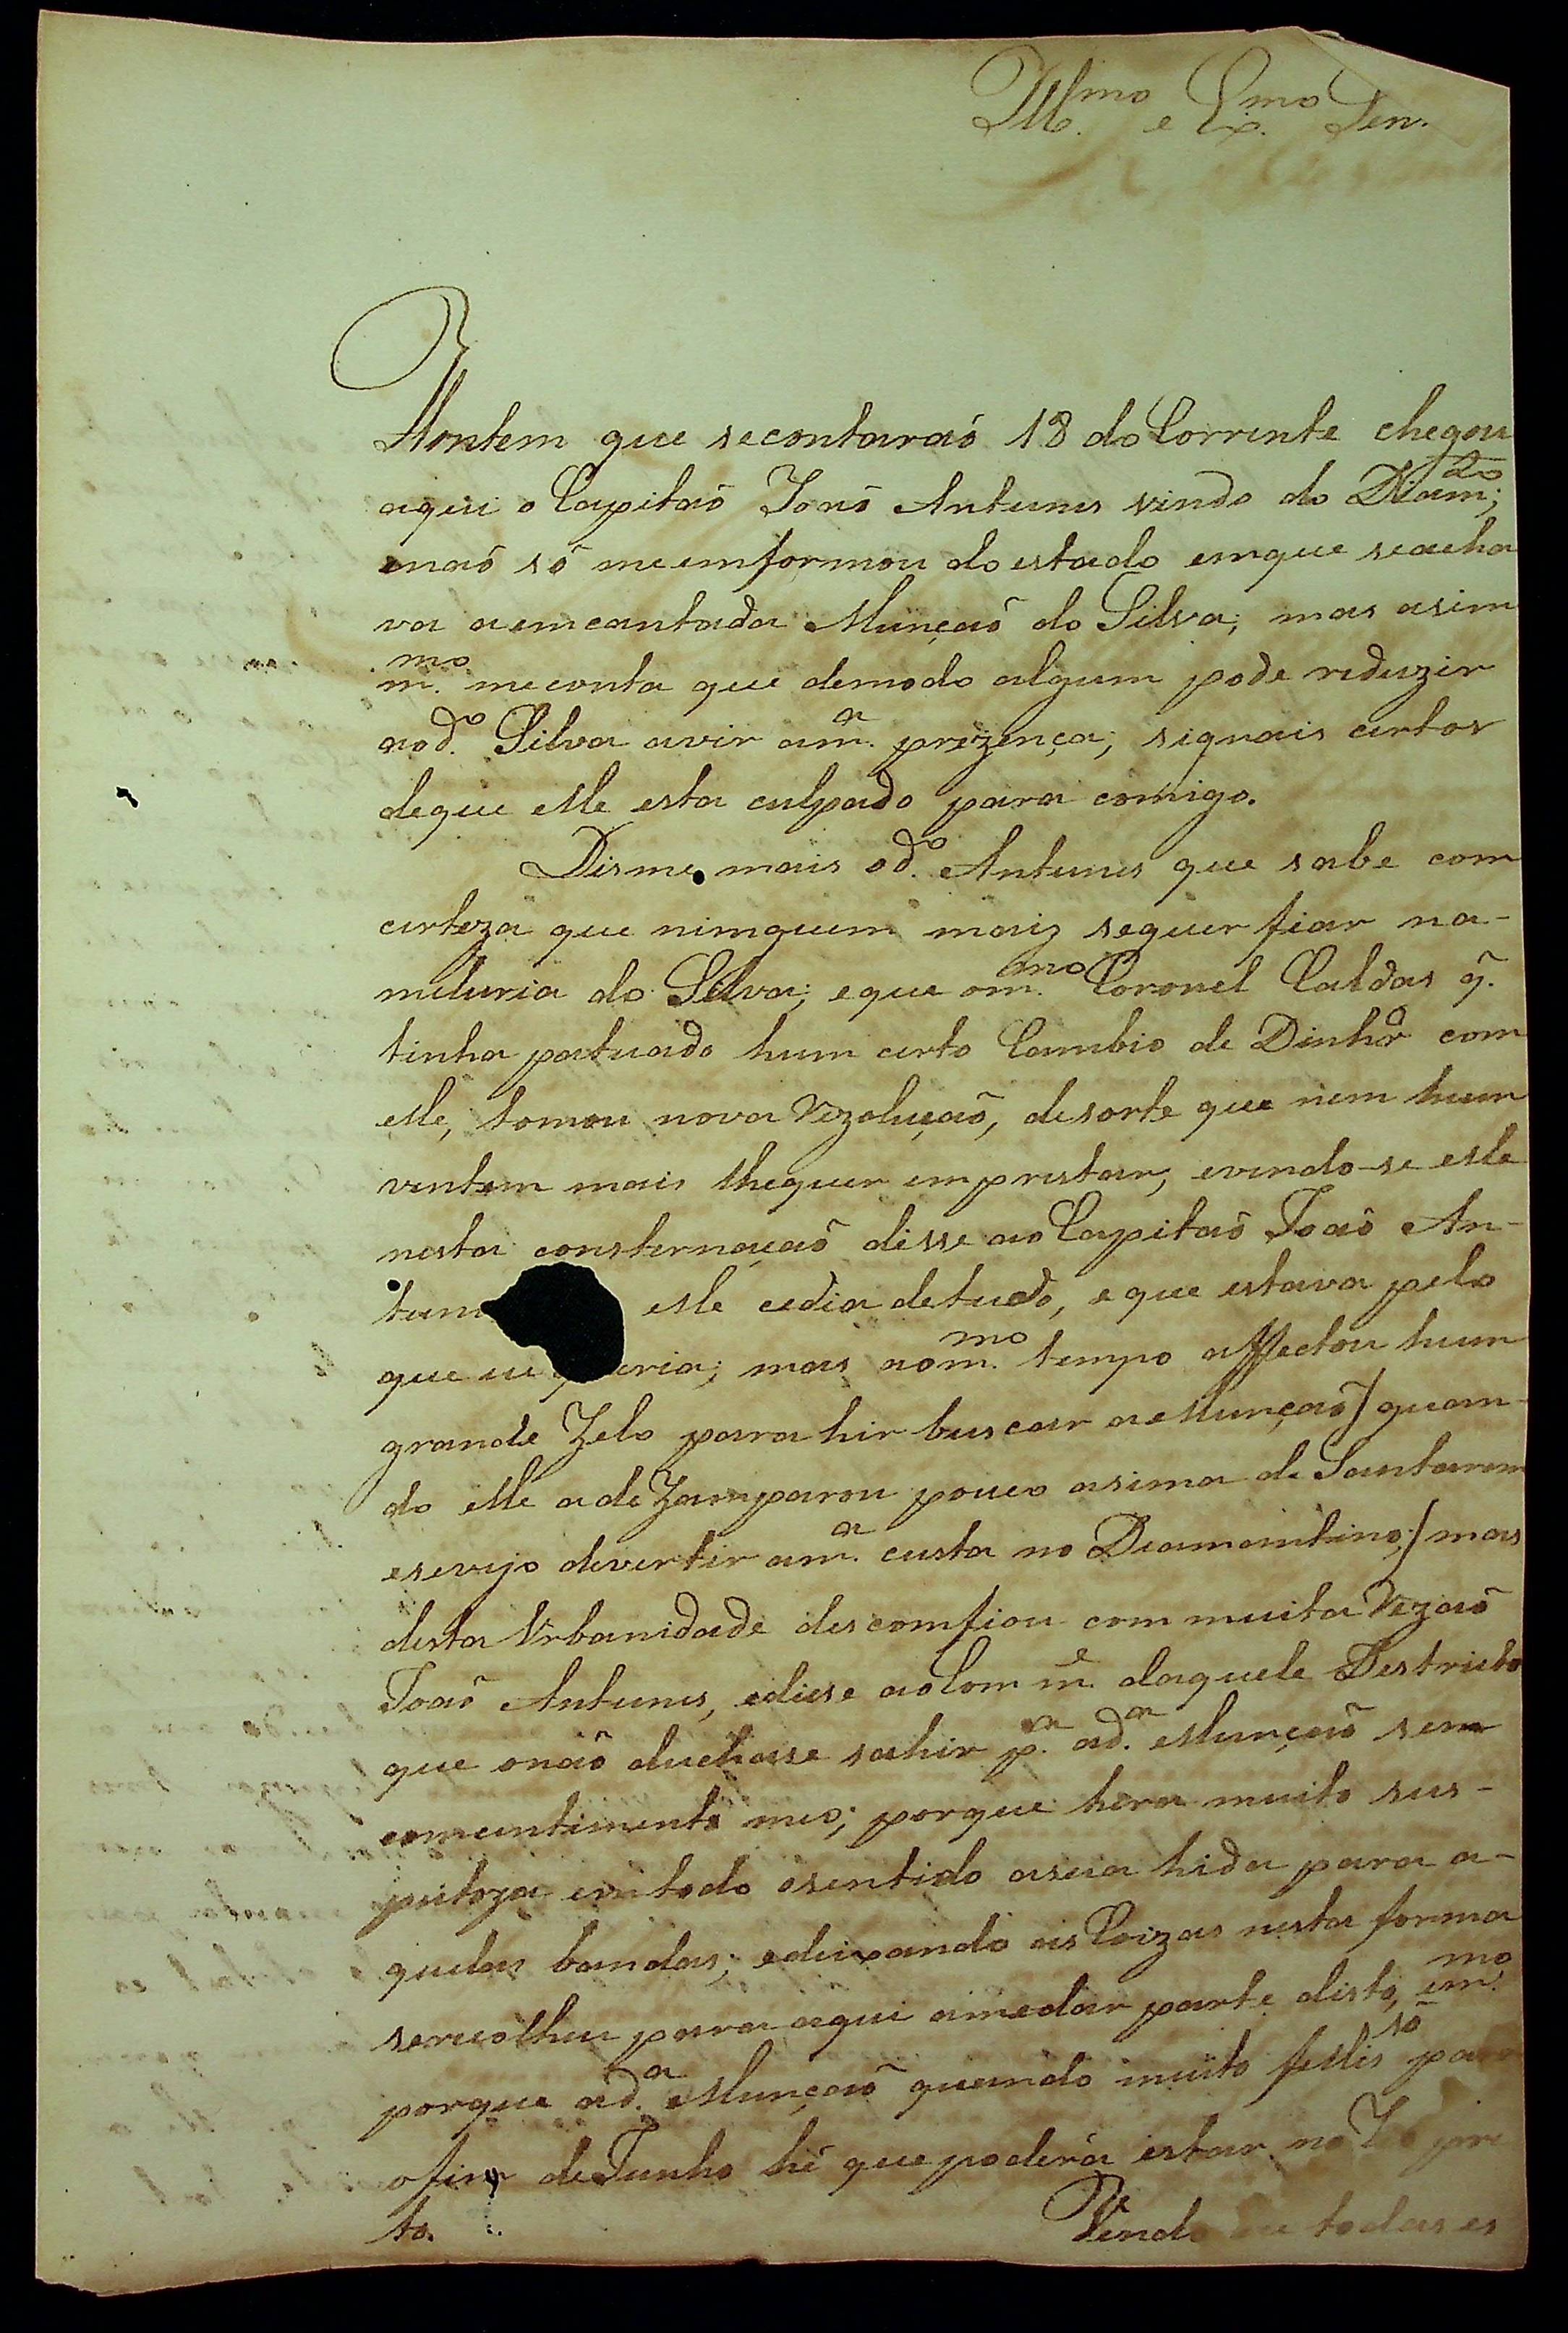 Ill.mo e Ex.mo Sen.
Hontem que secontaraõ 18 do Corrente chegou
aqui o Capitaõ Joaõ Antunes vindo do Diam.do;
enaõ só meemformou do estado emque seacha
va aemcantada Munçaõ do Silva; mas asim
m.mo meconta que demodo algum pode reduzir
aod.o Silva avir am.a prezença; signais certos
deque elle esta culpado para comigo.
Disme mais od.o Antunes que sabe com
certeza que nimguem maiz sequer fiar na-
meluria do Silva; eque om.mo Coronel Caldas q̃.
tinha patuado hum certo Cambio de Dinhr.o com
elle, tomou nova Rezoluçaõ, desorte que nem hum
vintem mais lhequer emprestar, evendo-se elle
nesta consternaçaõ disse ao Capitaõ Joaõ An-
tun elle cedia detudo, e que estava pelo
que eria; mas aom.mo tempo affectou hum
grande Zelo para hir buscar aMunçaõ/ quam-
do elle adeZamparou pouco asima de Santarem
esevejo devertir am.a custa no Deamantino;/ mas
desta Urbanidade descomfiou com muita Rezaõ
Joaõ Antunes, edisse aoCom m.e daquele Destricto
que onaõ deichase sahir p.a ad.a Munçaõ sem
comcentimento meo; porque hera muito sus-
peitoza emtodo osentido asua hida para a-
quelas bandas; edeixando as Coizas nesta forma
serecolheu para aqui amedar parte disto, em.mo
porque ad.a Munçaõ quando muito fellis só para
ofim deJunho hé que poderá estar no pre
to.
Vendo eu todas es